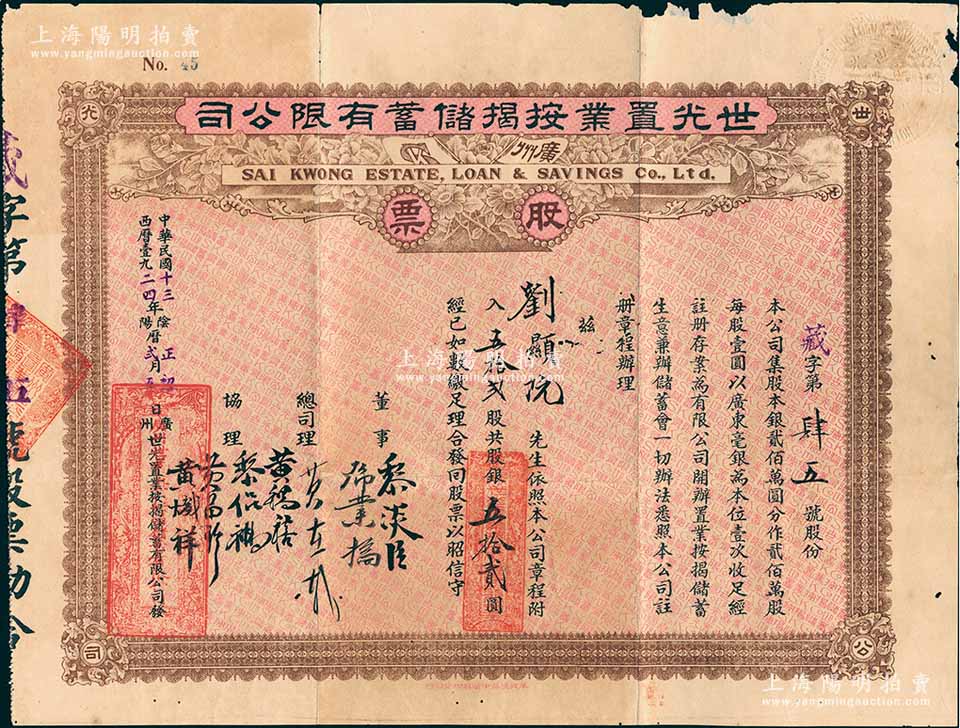 上海陽明拍賣
www.yangmingauction.com
No. 45
世光置業按揭儲蓄有限公司
廣州
SAI KWONG ESTATE, LOAN & SAVINGS Co., Ltd.
股票
藏字第肆五號股份
本公司集股本銀貳佰萬圓分作貳佰萬股
每股壹圓以廣東毫銀為本位壹次收足經
註册存案為有限公司開辦置業按揭儲蓄
生意兼辦儲蓄會一切辦法悉照本公司註
册章程辦理
茲
劉顯沅 先生依照本公司章程附
入五拾弐股共股銀五拾貳圓
經已如數繳足理合發同股票以昭信守
董事
黎淡臣
總司理
協理
黃熾祥
廣州世光置業按揭儲蓄有限公司發
中華民國十三年陰曆正月初
西曆壹九二四年陽曆弍月五日
字第
號股票
世光公司
上海陽明拍賣
www.yangmingauction.com
上海陽明拍賣
www.yangmingauction.com